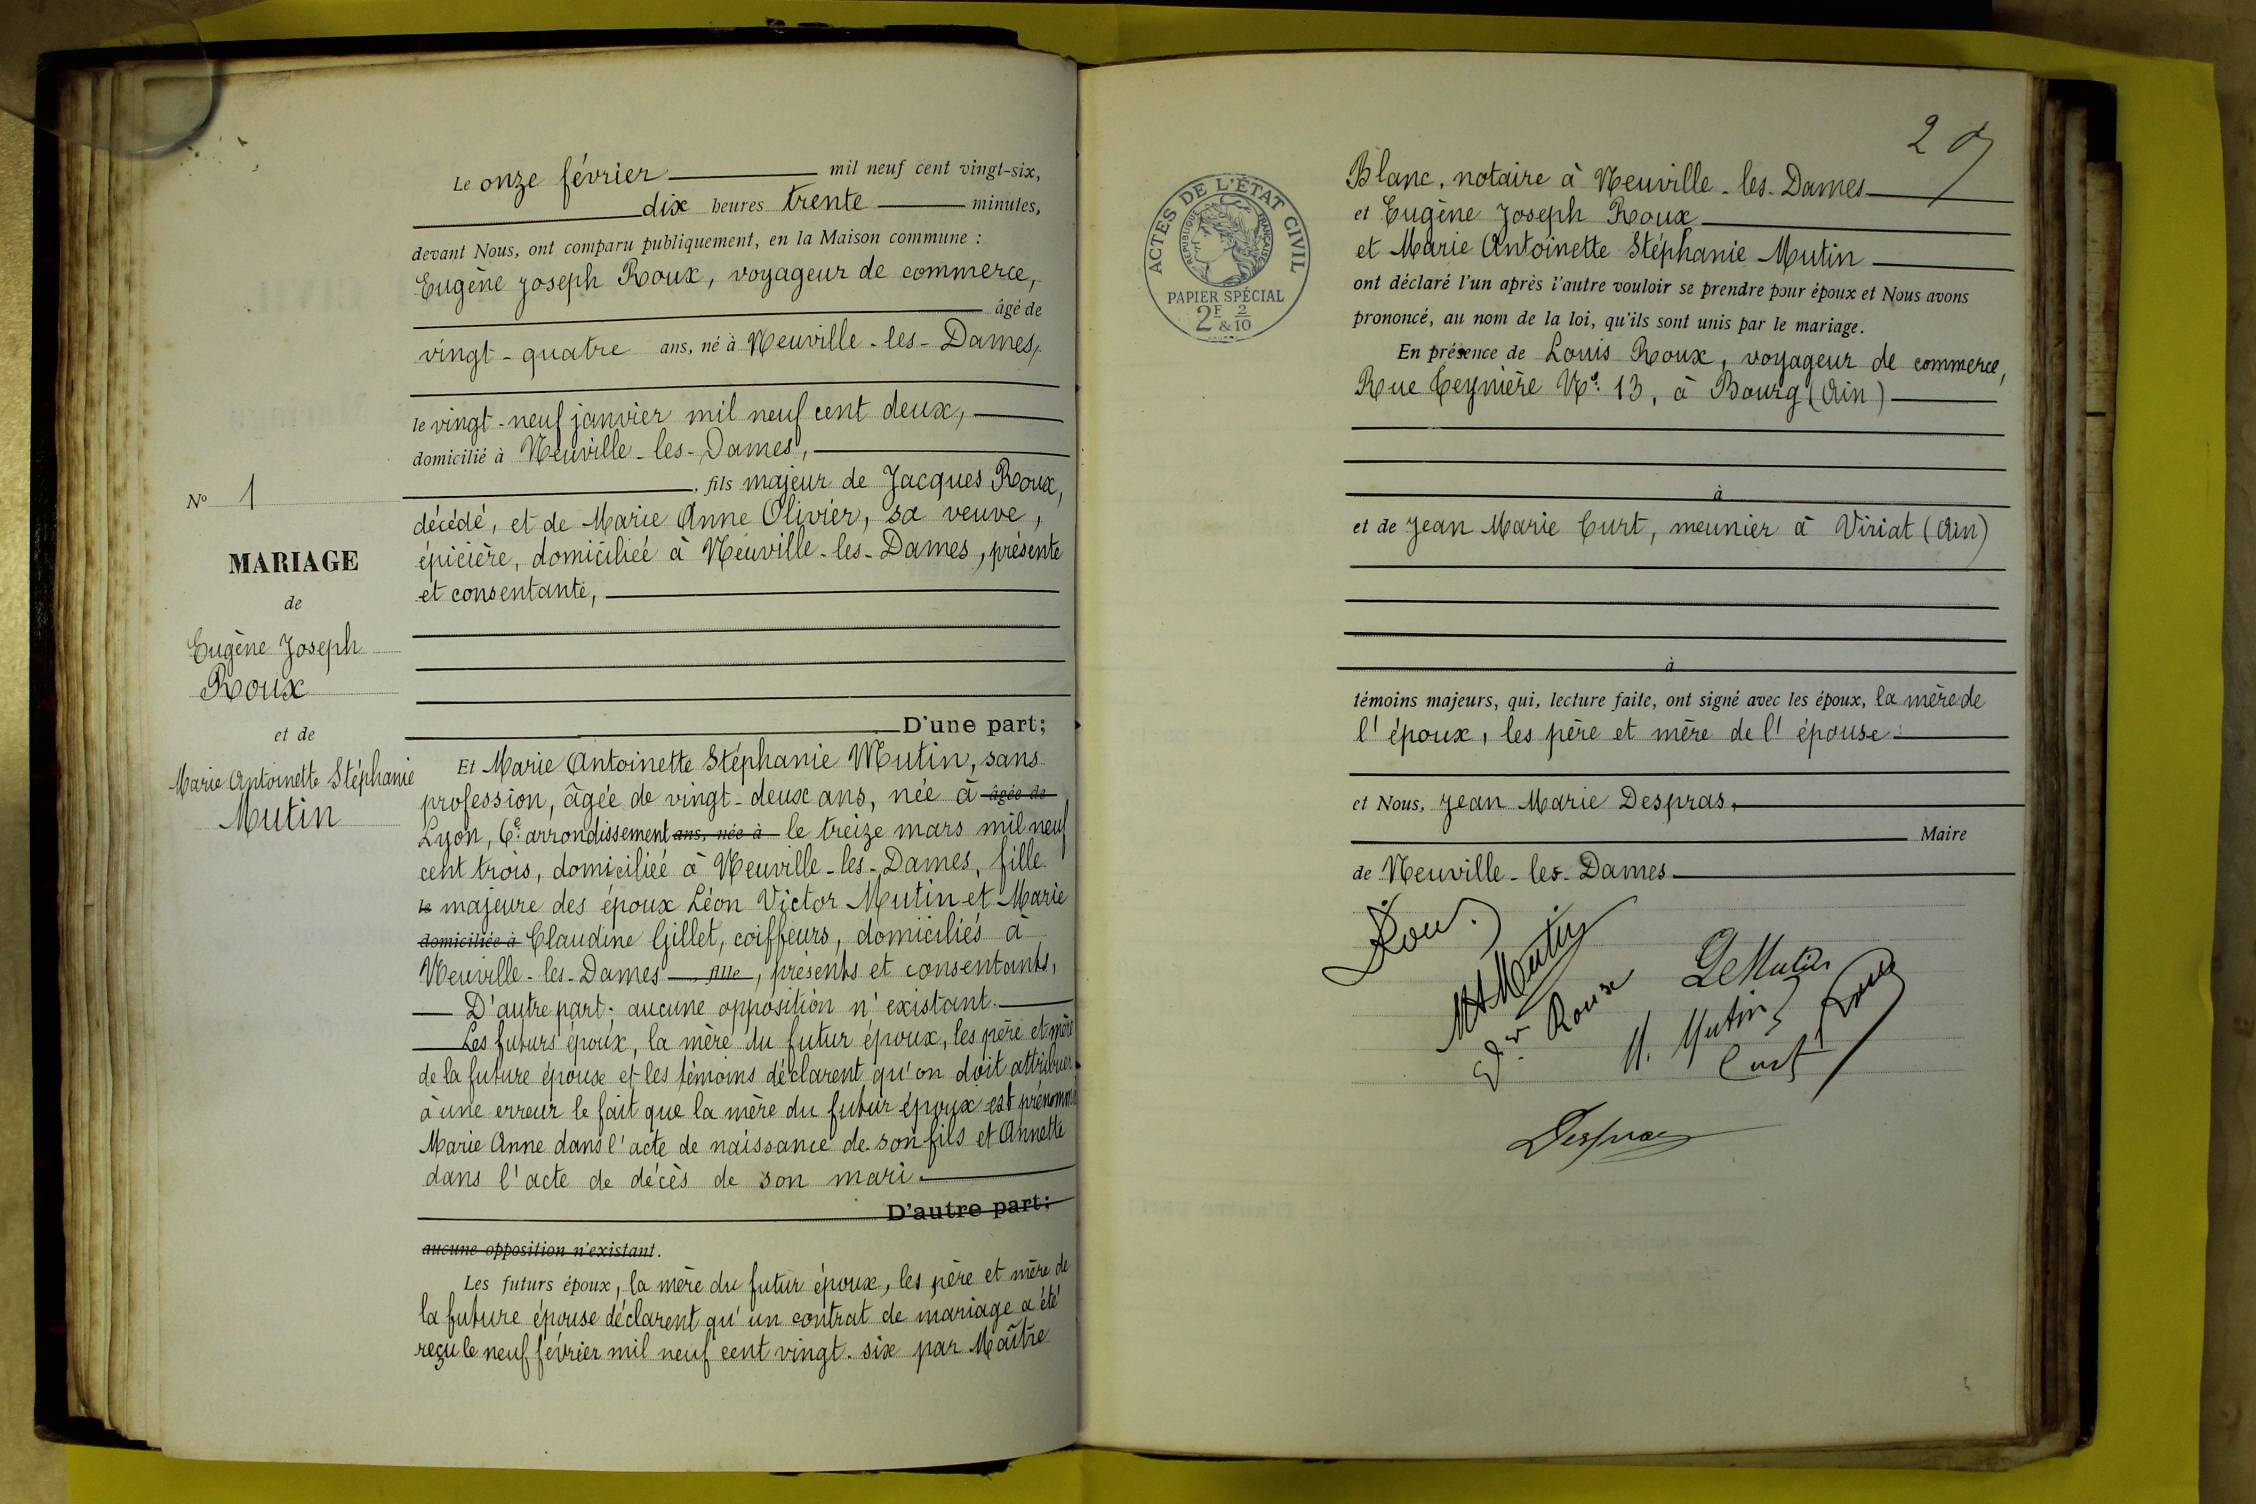 Le onze février mil neuf cent vingt-six,
dix heures trente minutes,
devant Nous, ont comparu publiquement, en la Maison commune :
Eugène Joseph Roux, voyageur de commerce,
âgé de
vingt-quatre ans, né à Neuville-les-Dames,
le vingt-neuf janvier mil neuf cent deux,
domicilié à Neuville-les-Dames,
, fils majeur de Jacques Roux,
décédé, et de Marie Anne Olivier, sa veuve,
épicière, domiciliée à Neuville-les-Dames, présente
et consentante,
D'une part;
N° 1
MARIAGE
de
Eugène Joseph
Roux
et de
Marie Antoinette Stéphanie
Mutin
Et Marie Antoinette Stéphanie Mutin, sans
profession, âgée de vingt-deux ans, née à âgée de
Lyon, 6e arrondissement ans, née à le treize mars mil neuf
cent trois, domiciliée à Neuville-les-Dames, fille
le majeure des époux Léon Victor Mutin et Marie
domiciliée à Claudine Gillet, coiffeurs, domiciliés à
Neuville-les-Dames , fille, présents et consentants,
D'autre part; aucune opposition n'existant.
Les futurs époux, la mère du futur époux, les père et mère
de la future épouse et les témoins déclarent qu'on doit attribuer
à une erreur le fait que la mère du futur époux est prénommée
Marie Anne dans l'acte de naissance de son fils et Annette
dans l'acte de décès de son mari.
D'autre part;
aucune opposition n'existant.
Les futurs époux, la mère du futur époux, les père et mère de
la future épouse déclarent qu'un contrat de mariage a été
reçu le neuf février mil neuf cent vingt-six par Maître
ACTES DE L'ÉTAT CIVIL
RÉPUBLIQUE FRANÇAISE
PAPIER SPÉCIAL
2F & 2/10
Blanc, notaire à Neuville-les-Dames
et Eugène Joseph Roux
et Marie Antoinette Stéphanie Mutin
ont déclaré l'un après l'autre vouloir se prendre pour époux et Nous avons
prononcé, au nom de la loi, qu'ils sont unis par le mariage.
En présence de Louis Roux, voyageur de commerce,
Rue Teynière N° 13, à Bourg (Ain)
à
et de Jean Marie Curt, meunier à Viriat (Ain)
à
témoins majeurs, qui, lecture faite, ont signé avec les époux, la mère de
l'époux, les père et mère de l'épouse
et Nous, Jean Marie Despras,
Maire
de Neuville-les-Dames
Roux
Mutin
Vr Roux
L Mutin
M. Mutin
Roux
Curt
Despras